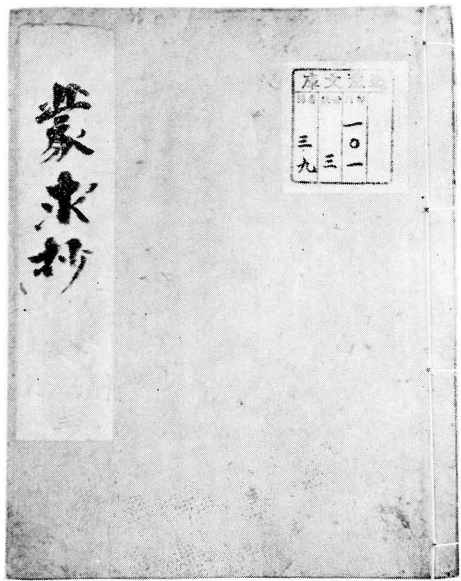 蒙求抄
文庫
一〇一
三
三九